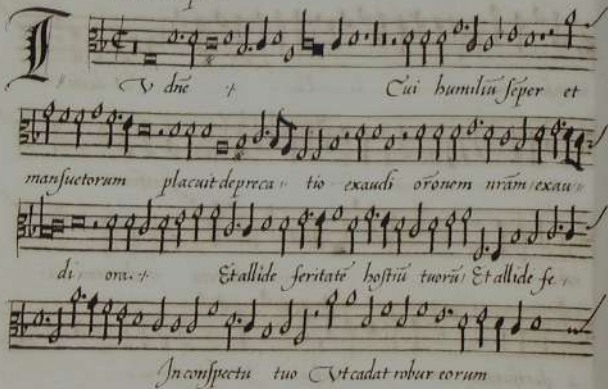 TU dñe ⁒ Cui humiliũ sẽper et
mansuetorum placuit depreca〃 tio exaudi orõnem nrãm exau〃
di ora ⁒ Et allide feritatẽ hostiũ tuorũ Et allide fe〃
In conspectu tuo Ut cadat robur eorum